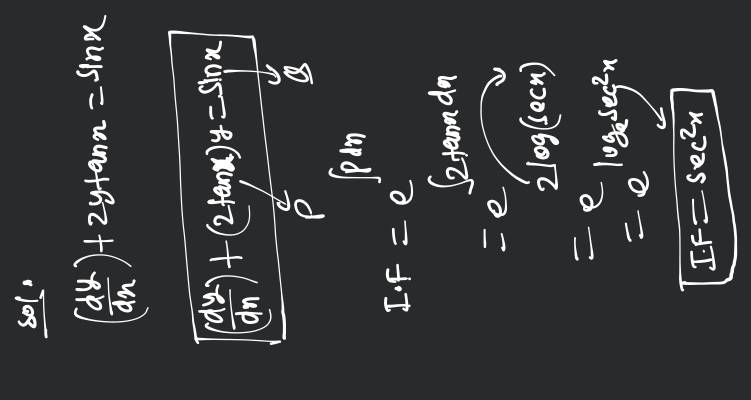 sol.
(dy/dx) + 2ytanx = sinx
(dy/dx) + (2tanx)y = sinx
P Q
I.F = e^∫Pdx
= e^∫2tanxdx
= e^2log(secx)
= e^log_e sec²x
I.F = sec²x